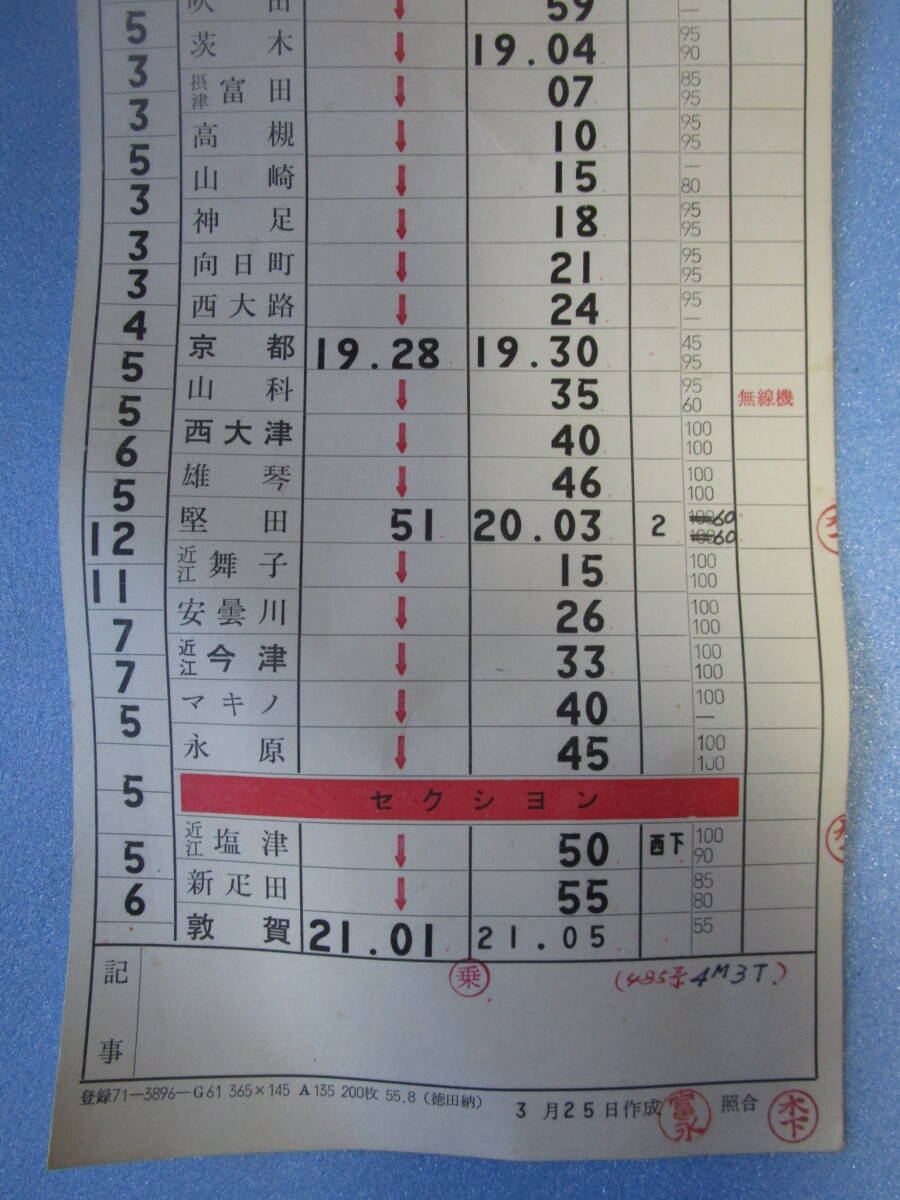 吹 田 ↓ 59 —
5
茨 木 ↓ 19.04 95 90
3
摂津 富 田 ↓ 07 85 95
3
高 槻 ↓ 10 95 95
5
山 崎 ↓ 15 — 80
3
神 足 ↓ 18 95 95
3
向 日 町 ↓ 21 95 95
3
西 大 路 ↓ 24 95 —
4
京 都 19.28 19.30 45 95
5
山 科 ↓ 35 95 60 無線機
5
西 大 津 ↓ 40 100 100
6
雄 琴 ↓ 46 100 100
5
堅 田 51 20.03 2 100 60 100 60
12
近江 舞 子 ↓ 15 100 100
11
安 曇 川 ↓ 26 100 100
7
近江 今 津 ↓ 33 100 100
7
マ キ ノ ↓ 40 100 —
5
永 原 ↓ 45 100 100
5
セクシヨン
近江 塩 津 ↓ 50 西下 100 90
5
新 疋 田 ↓ 55 85 80
6
敦 賀 21.01 21.05 55
記事
乗 (485系 4M3T.)
登録71—3896—G61 365×145 A135 200枚 55.8 (徳田納)
3月25日作成 富永 照合 木下